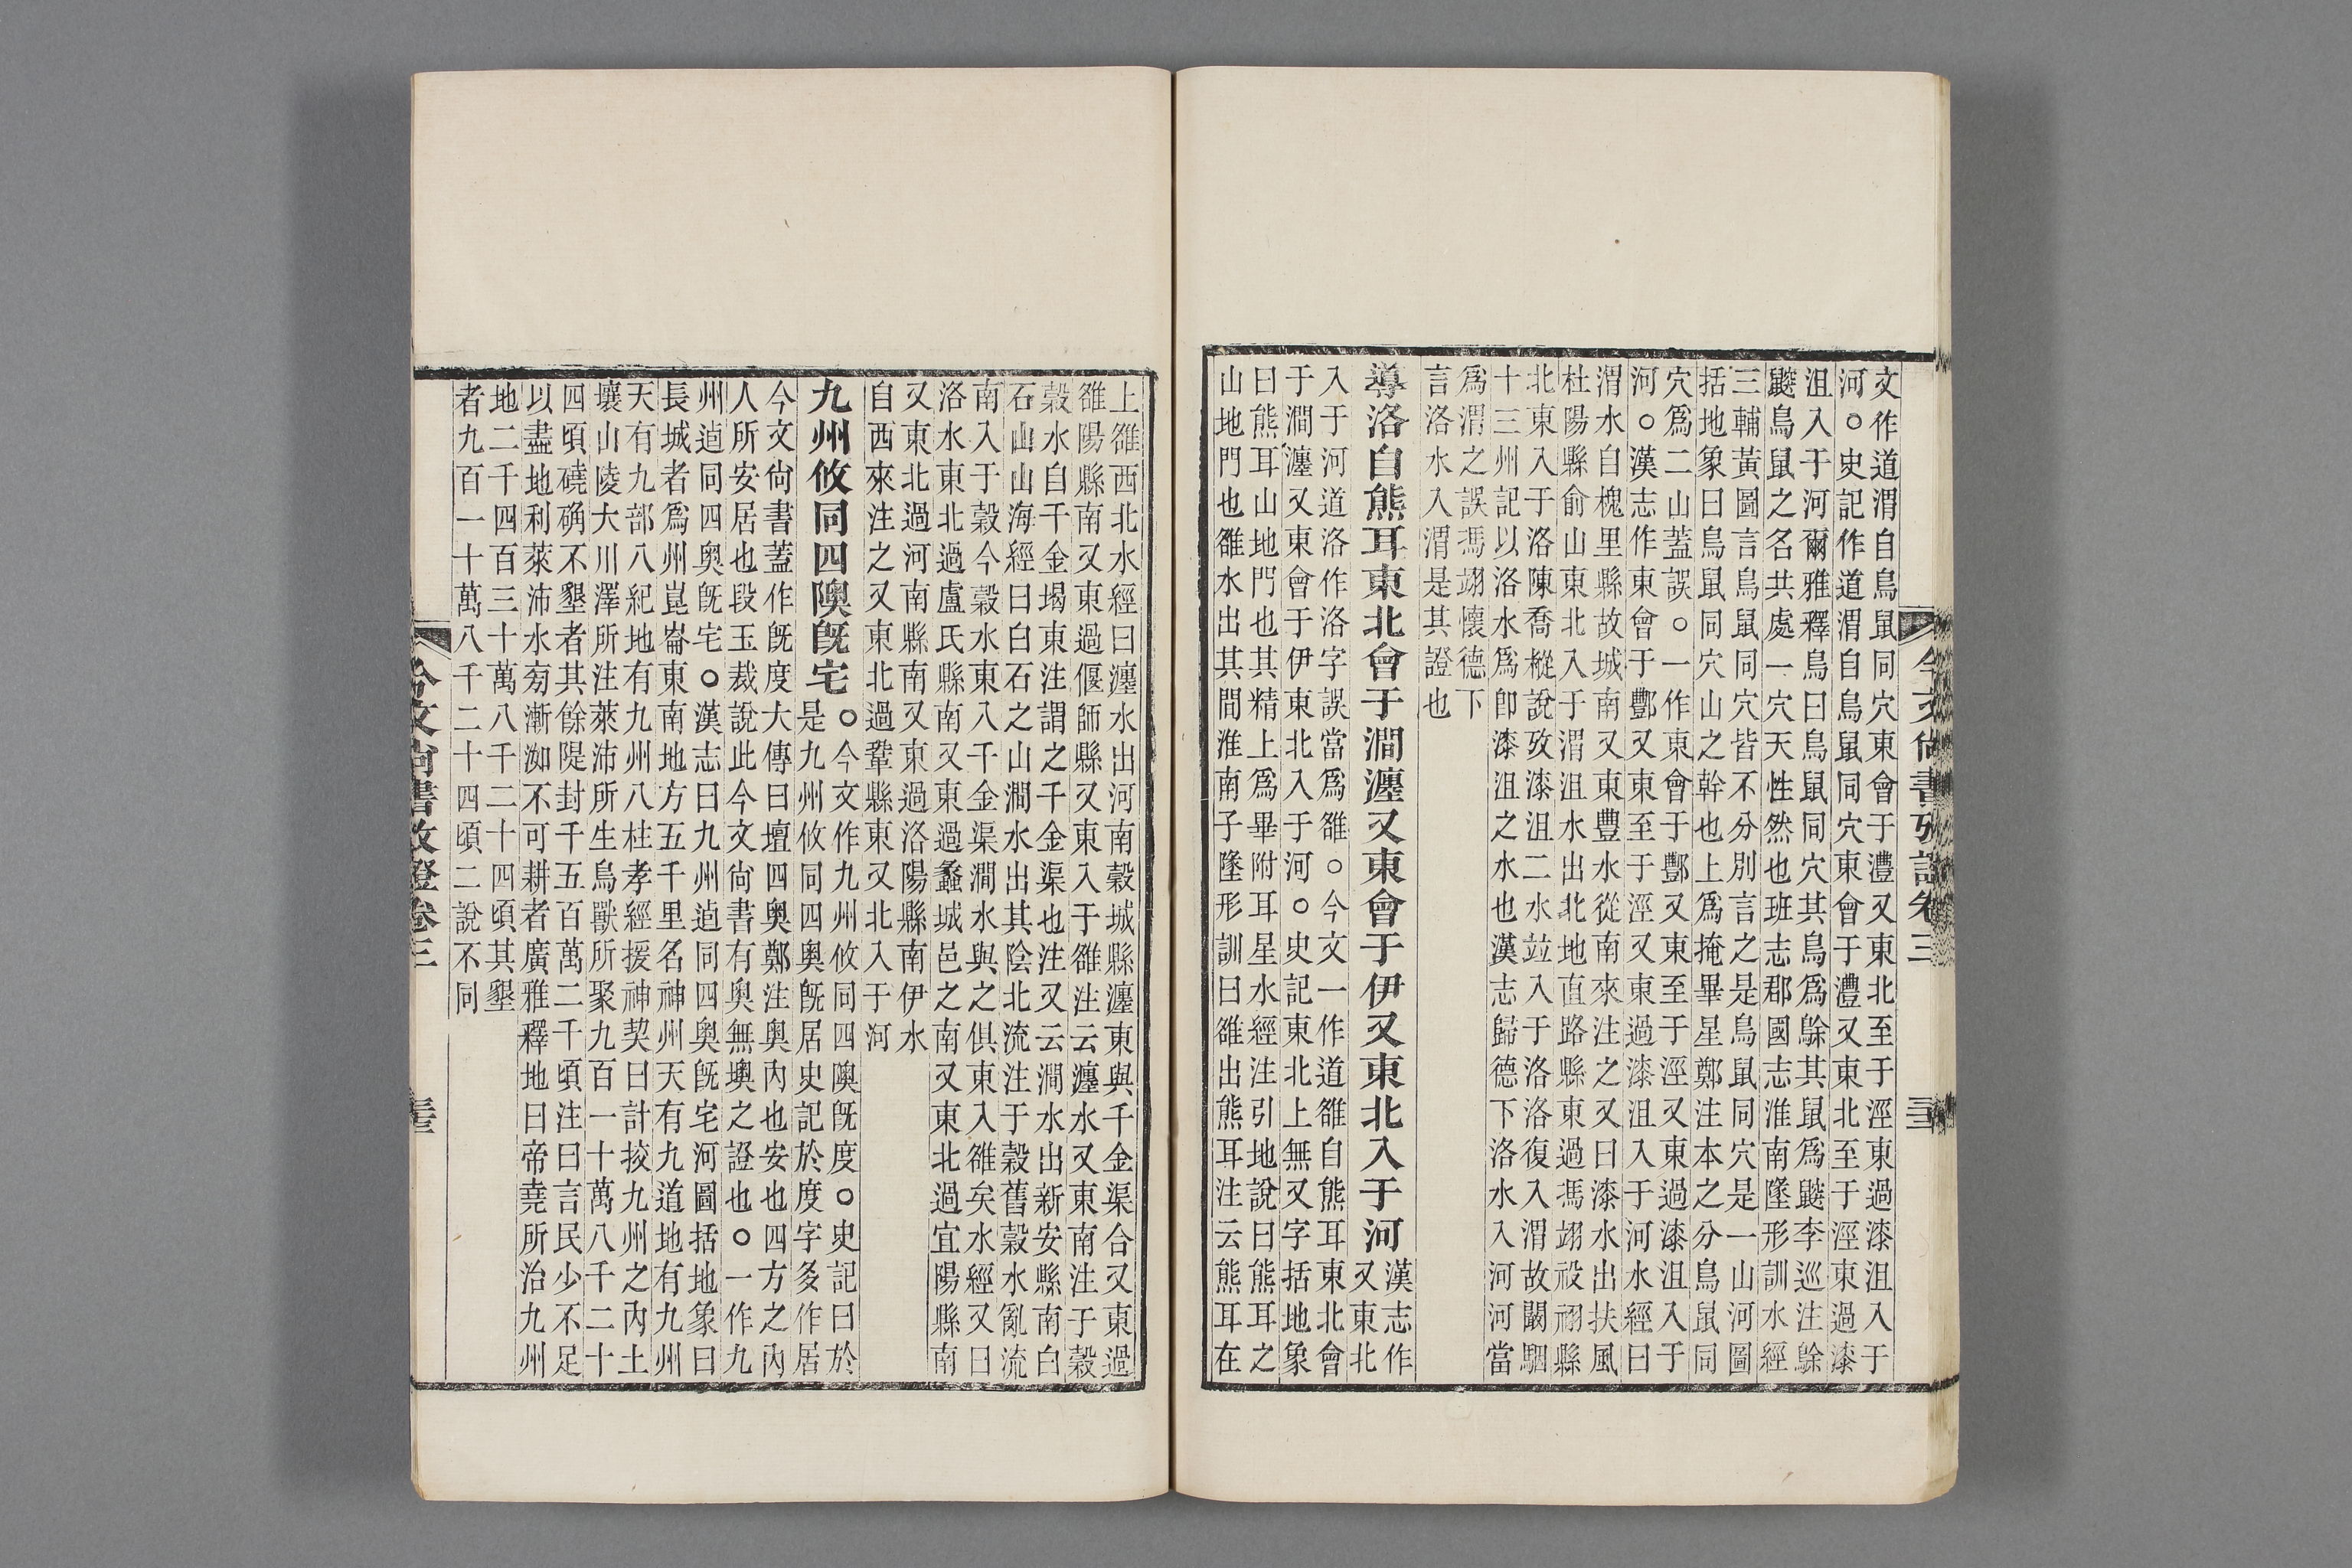 文作道渭自鳥鼠同穴東會于灃又東北至于涇東過漆沮入于
河○史記作道渭自鳥鼠同穴東會于灃又東北至于涇東過漆
沮入于河爾雅釋鳥曰鳥鼠同穴其鳥爲鵌其鼠爲鼵李巡注鵌
鼵鳥鼠之名共處一穴天性然也班志郡國志淮南墬形訓水經
三輔黃圖言鳥鼠同穴皆不分別言之是鳥鼠同穴是一山河圖
括地象曰鳥鼠同穴山之幹也上爲掩畢星鄭注本之分鳥鼠同
穴爲二山蓋誤○一作東會于酆又東至于涇又東過漆沮入于
河○漢志作東會于酆又東至于涇又東過漆沮入于河水經曰
渭水自槐里縣故城南又東豐水從南來注之又曰漆水出扶風
杜陽縣俞山東北入于渭沮水出北地直路縣東過馮翊祋祤縣
北東入于洛陳喬樅說攷漆沮二水竝入于洛洛復入渭故闞駰
十三州記以洛水爲卽漆沮之水也漢志歸德下洛水入河河當
爲渭之誤馮翊懷德下
言洛水入渭是其證也
導洛自熊耳東北會于澗瀍又東會于伊又東北入于河
漢志作
又東北
入于河道洛作洛字誤當爲雒○今文一作道雒自熊耳東北會
于澗瀍又東會于伊東北入于河○史記東北上無又字括地象
曰熊耳山地門也其精上爲畢附耳星水經注引地說曰熊耳之
山地門也雒水出其間淮南子墬形訓曰雒出熊耳注云熊耳在
今文尙書攷證卷三
上雒西北水經曰瀍水出河南穀城縣瀍東與千金渠合又東過
雒陽縣南又東過偃師縣又東入于雒注云瀍水又東南注于穀
穀水自千金堨東注謂之千金渠也注又云澗水出新安縣南白
石山山海經曰白石之山澗水出其陰北流注于穀舊穀水亂流
南入于穀今穀水東入千金渠澗水與之俱東入雒矣水經又曰
洛水東北過盧氏縣南又東過蠡城邑之南又東北過宜陽縣南
又東北過河南縣南又東過洛陽縣南伊水
自西來注之又東北過鞏縣東又北入于河
九州攸同四隩旣宅
○今文作九州攸同四隩旣度○史記曰於
是九州攸同四奧旣居史記於度字多作居
今文尙書蓋作旣度大傳曰壇四奧鄭注奧內也安也四方之內
人所安居也段玉裁說此今文尙書有奧無墺之證也○一作九
州逌同四奧旣宅○漢志曰九州逌同四奧旣宅河圖括地象曰
長城者爲州崑崙東南地方五千里名神州天有九道地有九州
天有九部八紀地有九州八柱孝經援神契曰計挍九州之內土
壤山陵大川澤所注萊沛所生鳥獸所聚九百一十萬八千二十
四頃磽确不墾者其餘隄封千五百萬二千頃注曰言民少不足
以盡地利萊沛水旁漸洳不可耕者廣雅釋地曰帝堯所治九州
地二千四百三十萬八千二十四頃其墾
者九百一十萬八千二十四頃二說不同
今文尙書攷證卷三